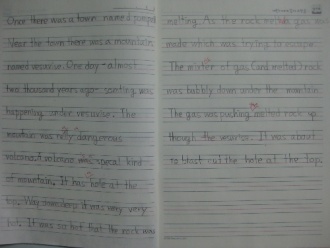 Once there was a town named pompeii
Near the town there was a mountain
named vesuvise. One day - almost
two thousand years ago. somting was
happening under vesuvise. The
mountain was very dangerous
volcano. A volcano special kind
of mountain. It has hole at the
top. Way someday it was very very
hot. It was so hot that the rock was
melting. As the rock melted gas
made which was trying to escape.
The mixter of gas and melted rock
was bubbly down under the mantein
The gas was puching melted rock up
though the vesuvise. It was about
to blast out the hole at the top.